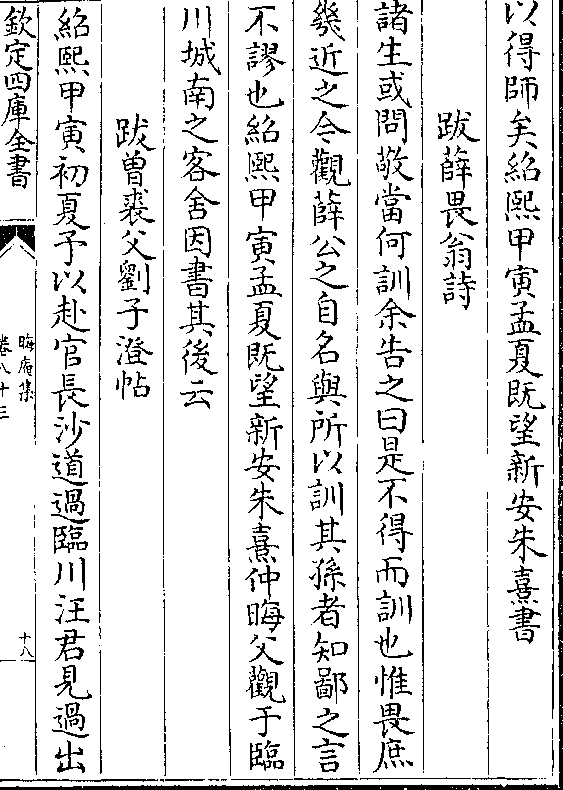 以得師矣紹熙甲寅孟夏既望新安朱熹書
跋薛畏翁詩
諸生或問敬當何訓余告之曰是不得而訓也惟畏庶
幾近之今觀薛公之自名與所以訓其孫者知鄙之言
不謬也紹熙甲寅孟夏既望新安朱熹仲晦父觀于臨
川城南之客舍因書其後云
跋曾裘父劉子澄帖
紹熙甲寅初夏予以赴官長沙道過臨川汪君見過出
欽定四庫全書
晦庵集
卷八十三
十八